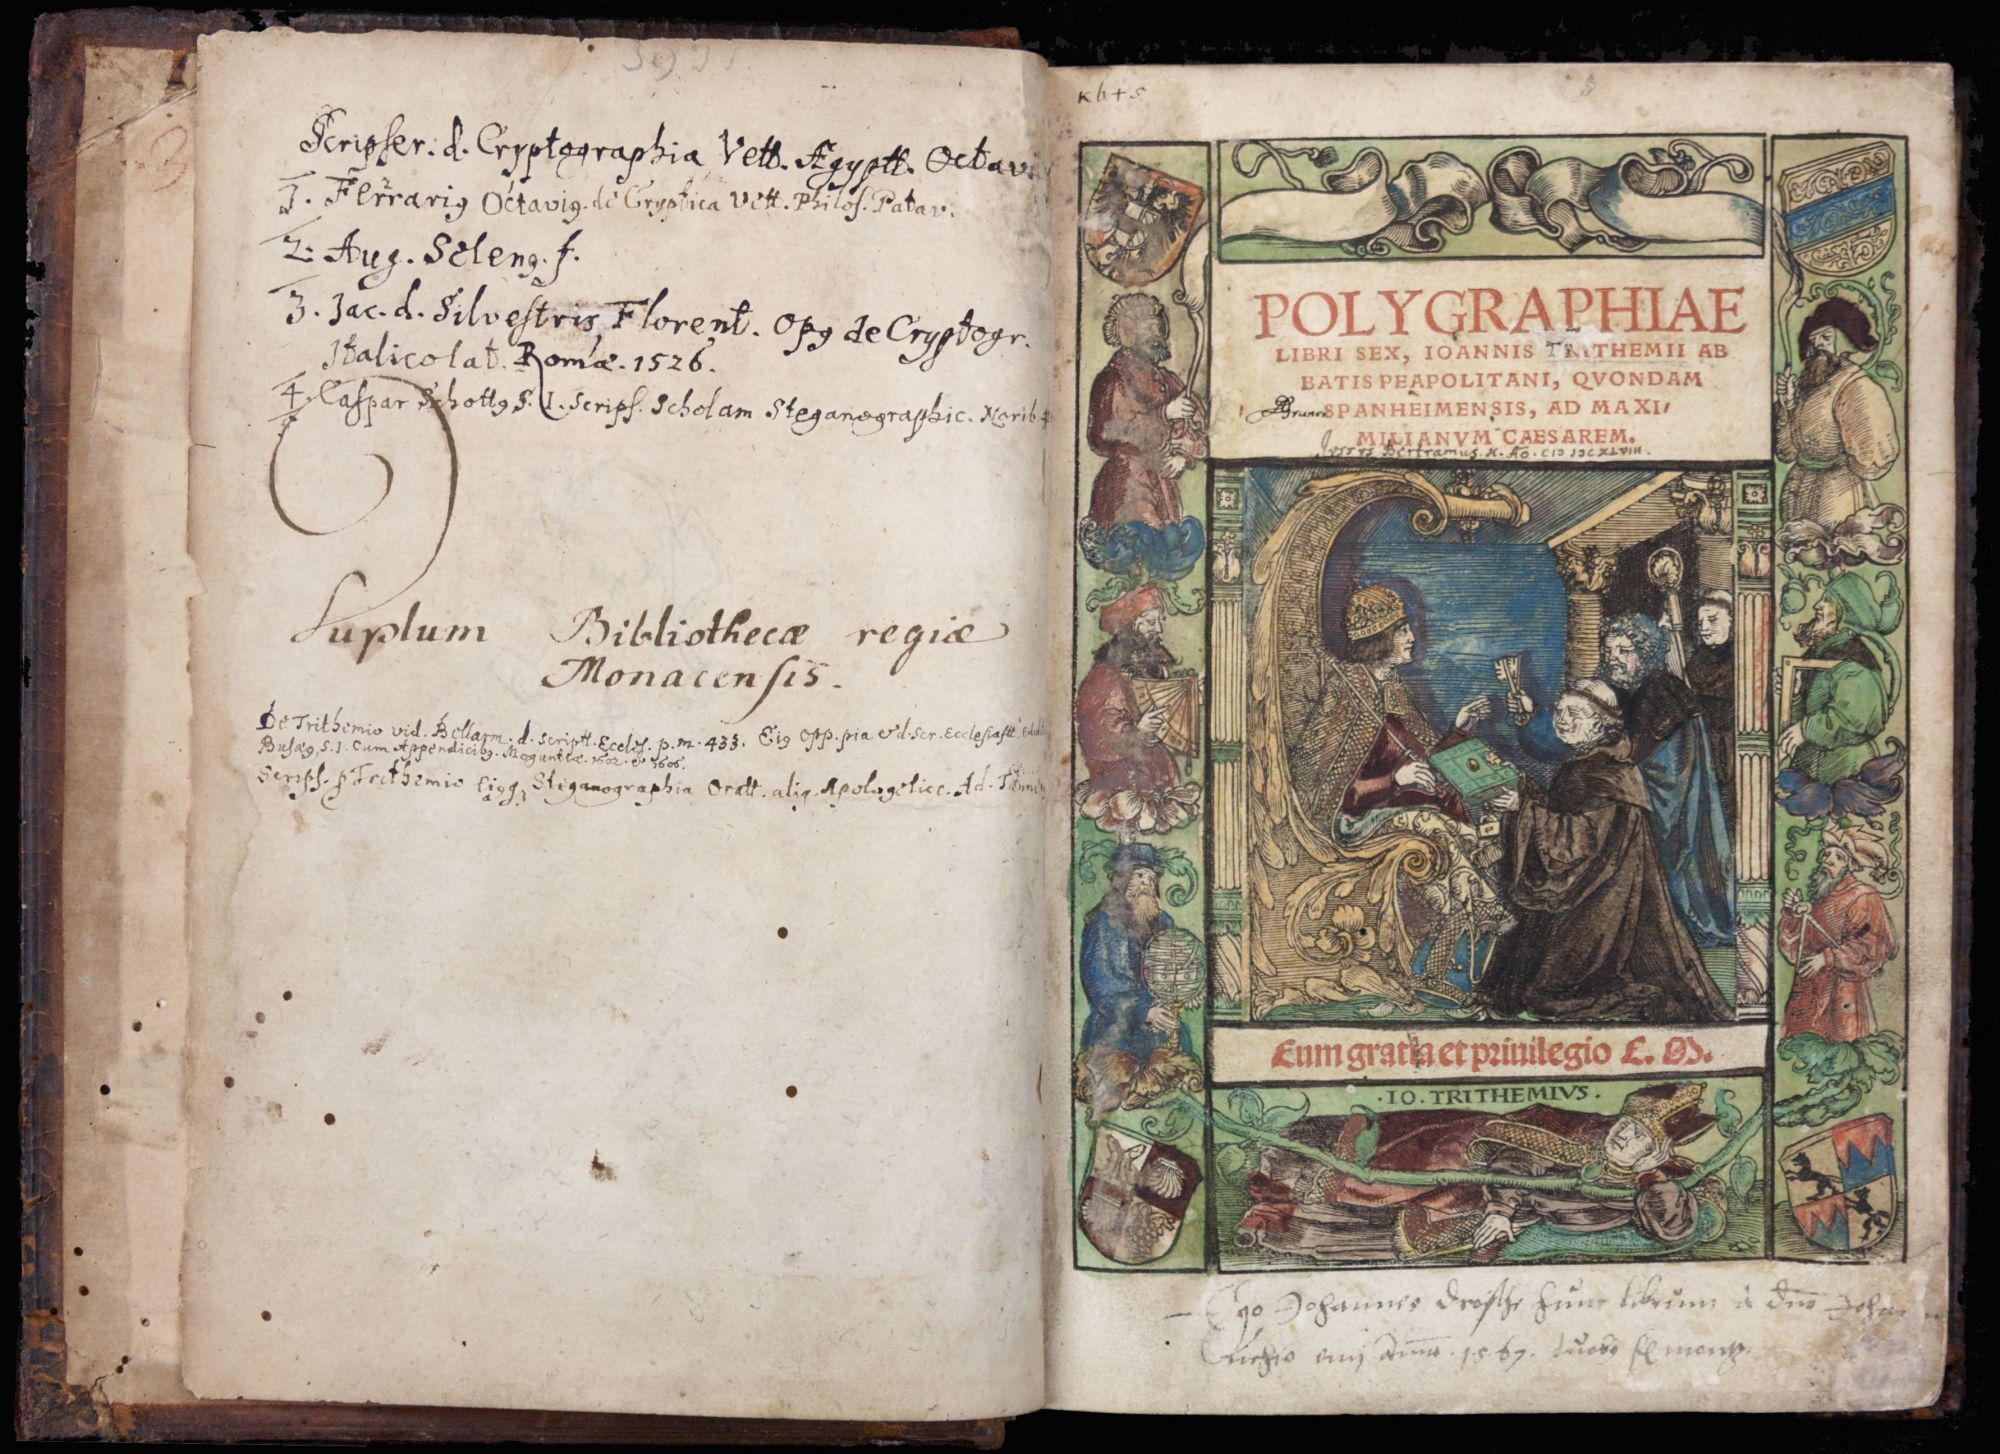 Scripser. d. Cryptographia Vett. Ægyptt. Octav.
1. Ferrariꝰ Octaviꝰ. de Cryptica Vett. Philos. Patav.
2. Aug. Seleng. f.
3. Jac. d. Silvestris Florent. Opꝰ de Cryptogr.
Italicolat. Romæ. 1526.
4. Caspar Schottꝰ S. I. scrips. Scholam Steganographic.
Duplum Bibliothecæ regiæ
Monacensis.
De Trithemio vid. Bellarm. d. scriptt. Eccles. p. m. 433. Eiꝰ opp. pia
Busæꝰ, S. I. cum Appendicibꝰ. Moguntiæ. 1602. & 1605.
Scrips. p Trithemio Steganographia Oratt. aliq. Apologeticc. Ad.
POLYGRAPHIAE
LIBRI SEX, IOANNIS TRITHEMII AB
BATIS PEAPOLITANI, QVONDAM
SPANHEIMENSIS, AD MAXI/
MILIANVM CAESAREM.
Bertramus. Aō. CIƆ IƆCXLVIII.
Cum gratia et priuilegio C. M.
·IO. TRITHEMIVS·
Ego Johannes hunc librum à dno
1567.